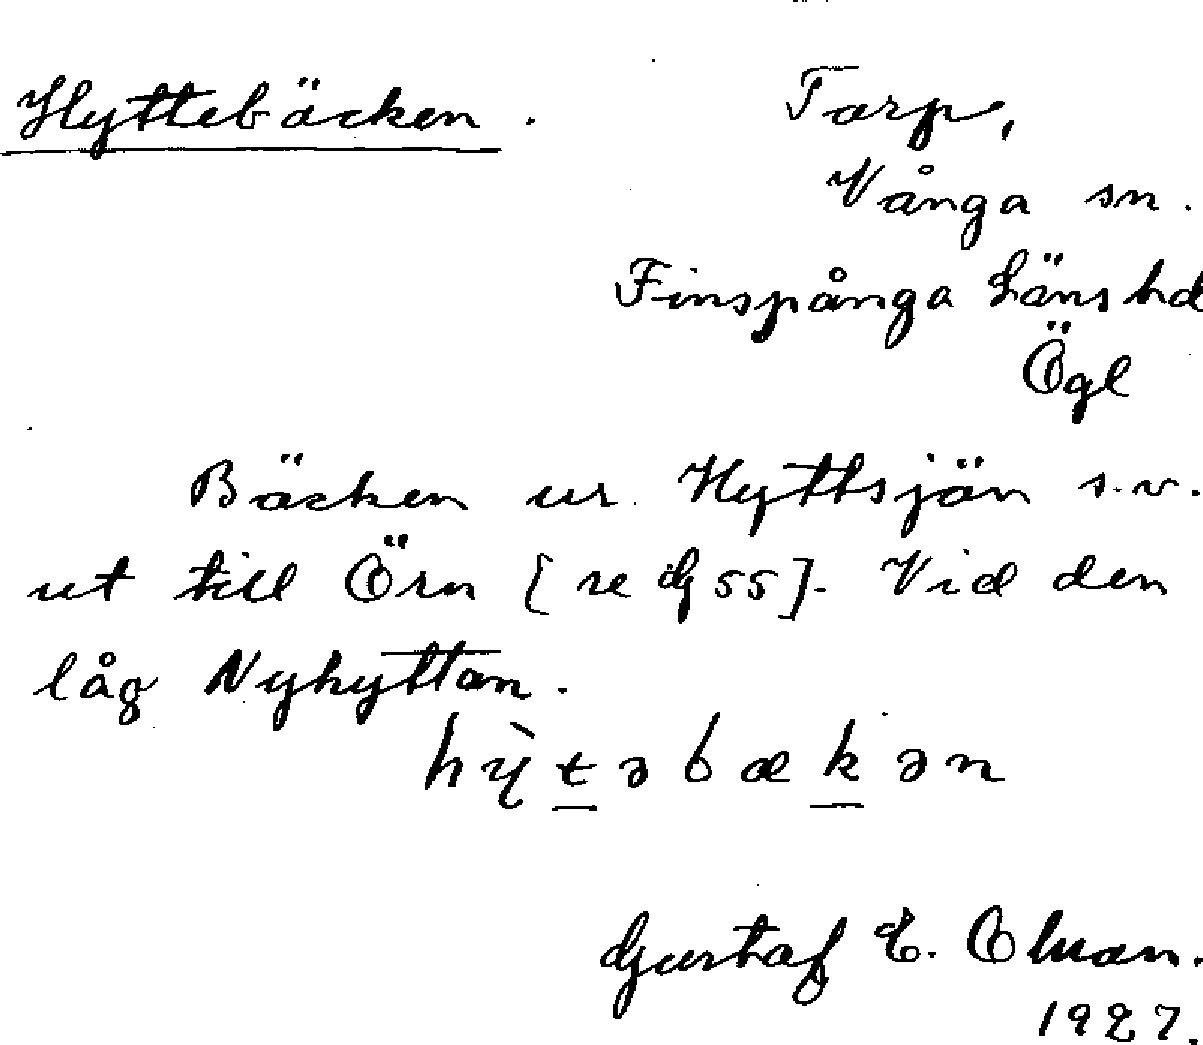 Hyttebäcken.
Torp,
Vånga sn.
Finspånga Läns hd
Ögl
Bäcken ur Hyttsjön s.v.
ut till Örn [se G 55]. Vid den
låg Nyhyttan.
hỳtəbækən
Gustaf E. Olsson.
1927.